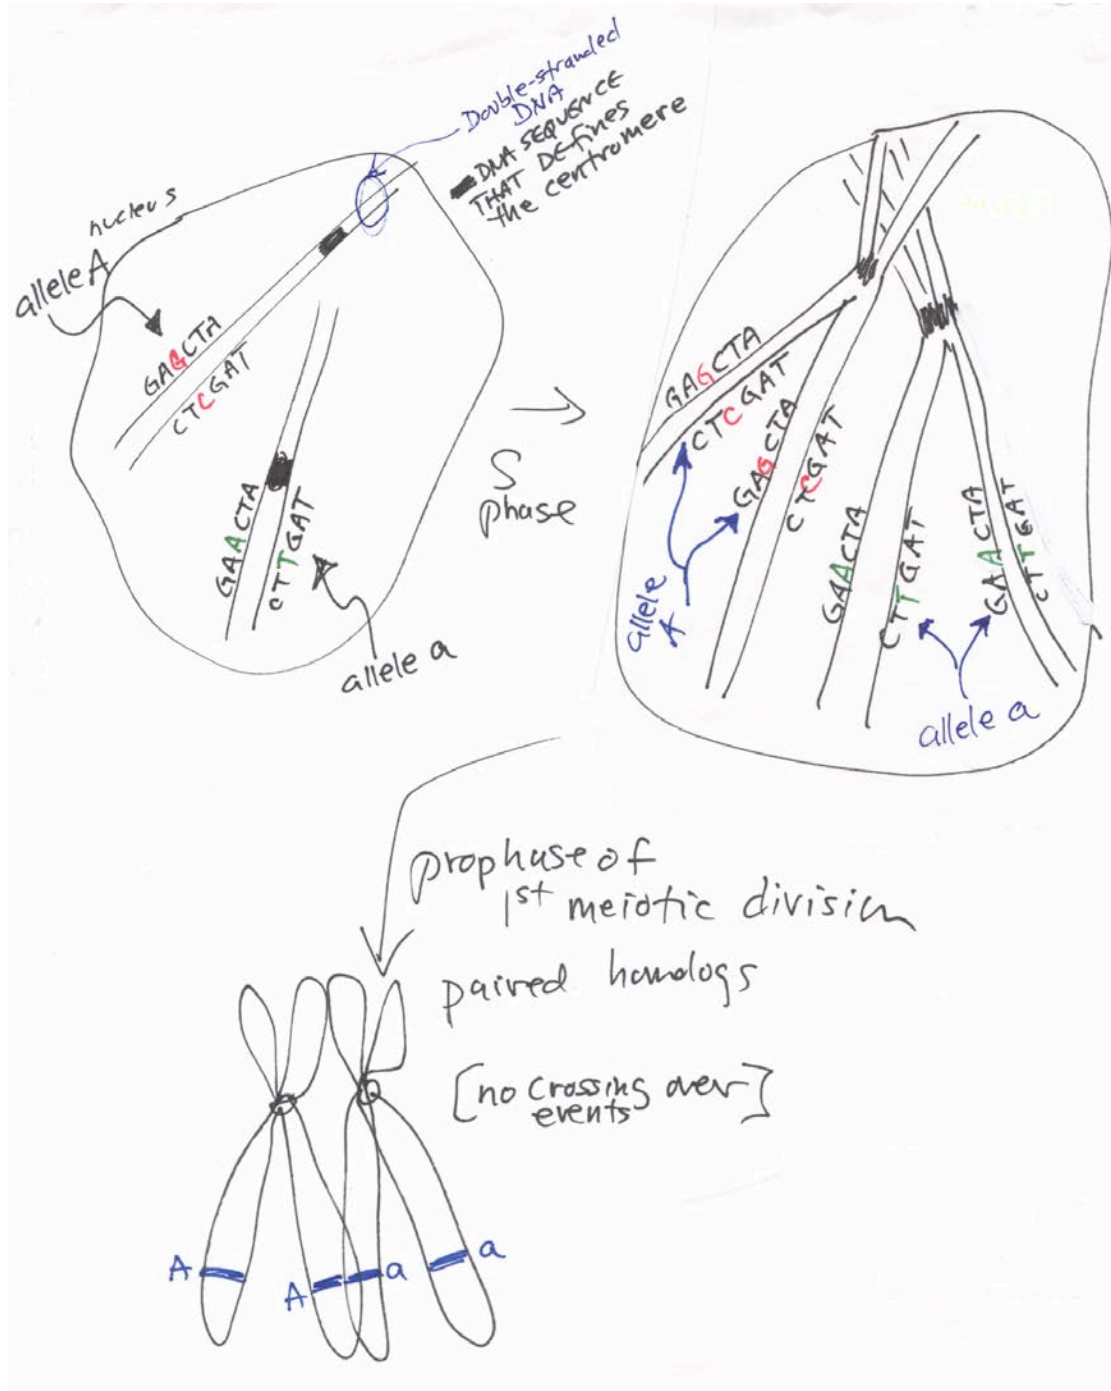 Double-stranded
DNA
DNA SEQUENCE
THAT DEfines
the centromere
nucleus
allele A
GAGCTA
CTCGAT
GAACTA
CTTGAT
allele a
S
phase
GAGCTA
CTCGAT
GAGCTA
CTCGAT
GAACTA
CTTGAT
GAACTA
CTTGAT
allele
A
allele a
prophase of
1st meiotic division
paired homologs
[no crossing over]
events
A
A
a
a